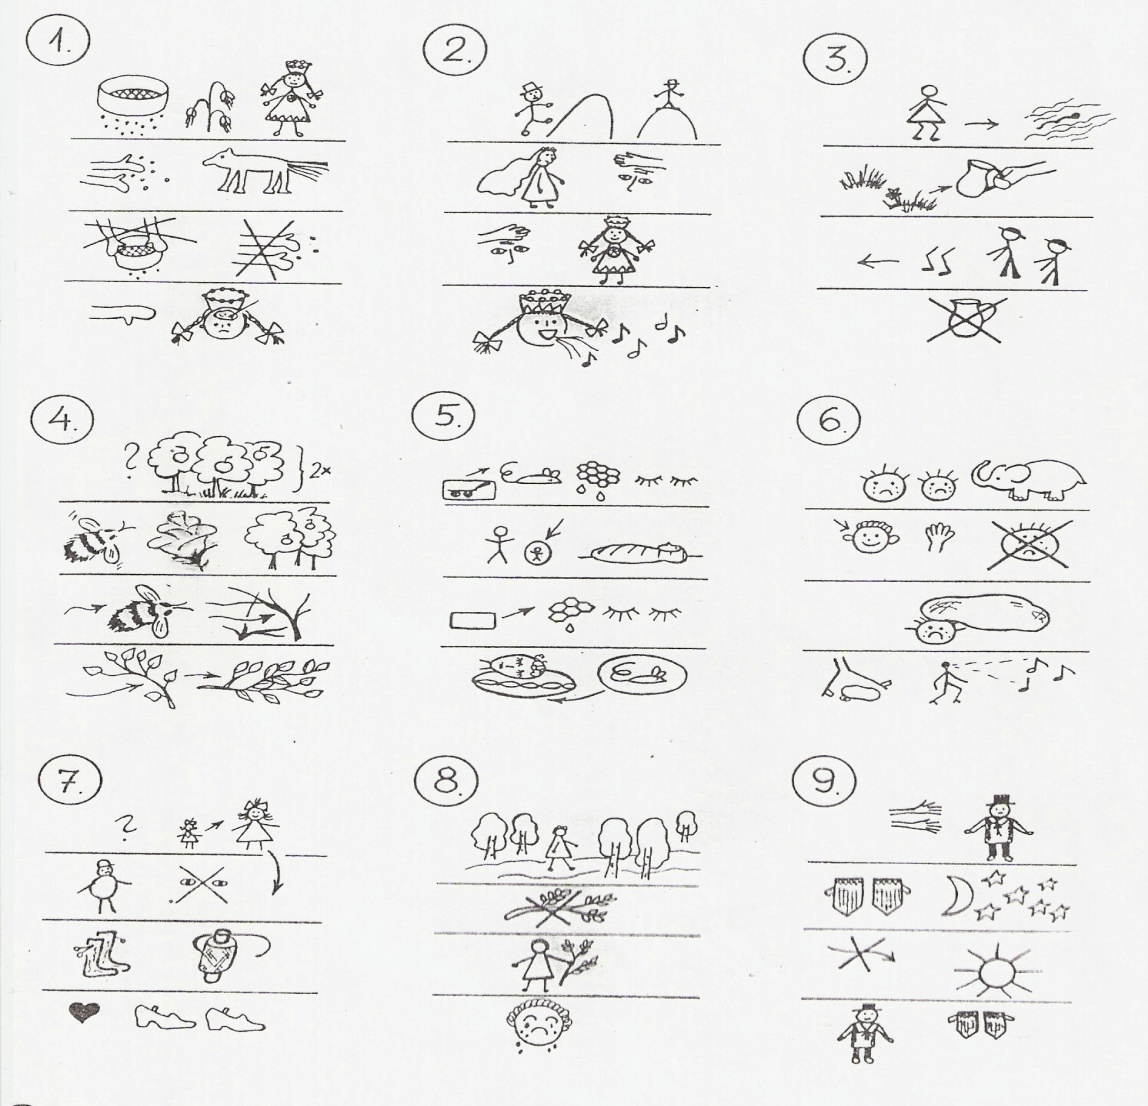 1.
2.
3.
4.
? 2x
5.
6.
7.
?
8.
9.